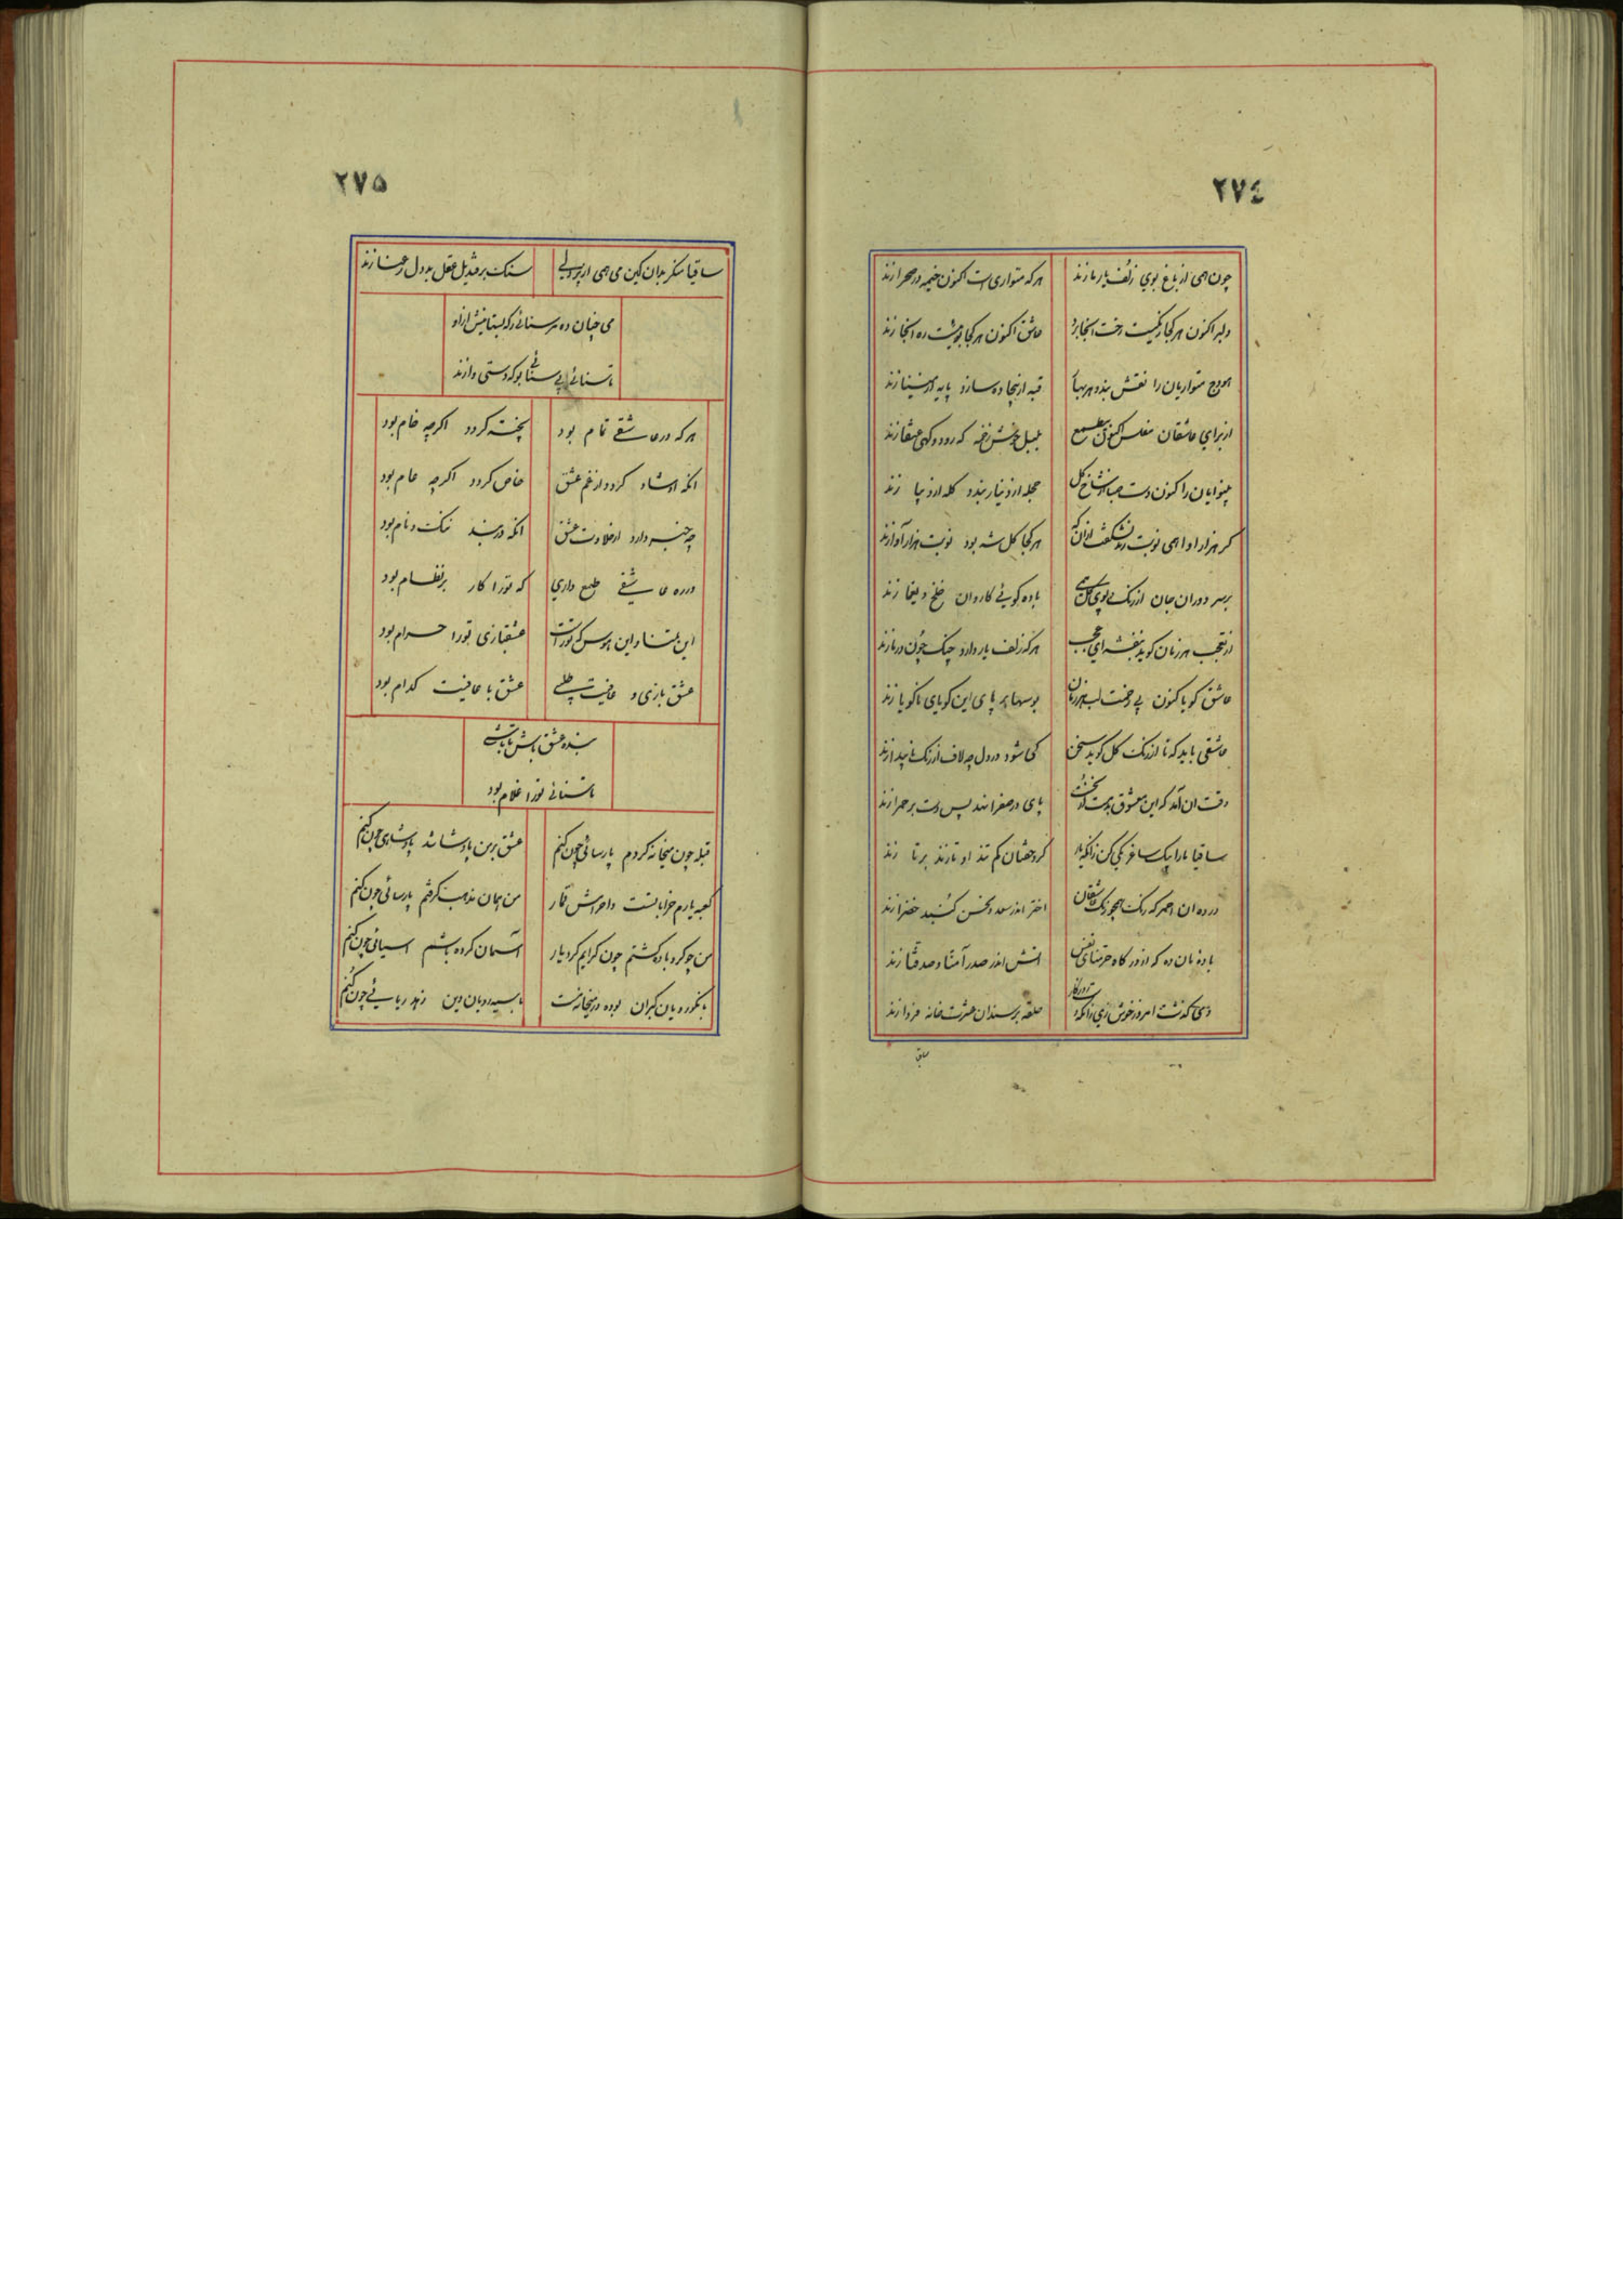 ٢٧٤
چون همی از باغ بوی زلف یار ما زند هرکه متواری است اکنون خیمه در صحرا زند
دلبر اکنون هرکجا رنگیست رخت آنجا برد عاشق اکنون هرکجا بوئیست ره آنجا زند
هودج متواریان را نقش بندد هر بهار قبه از بیجاده سازد پایه از مینا زند
از برای عاشقان مفلس اکنون بی طمع بلبل خوش زخمه گه رود و گهی عنقا زند
بینوایان را کنون دست صبا از شاخ گل حجله از دینار بندد کله از دیبا زند
گر هزار آوا همی نوبت زند نشکفت ازانکه هرکجا گل شه بود نوبت هزار آوا زند
بر سر دوران جان از رنگ بی بوی کسی باده گوئی کاروان خلخ و یغما زند
از تعجب هر زمان گوید بنفشه ای عجب هرکه زلف یار دارد چنگ چون در ما زند
عاشق گویا کنون بی زحمت لب هر زمان بوسها بر پای این گویای ناگویا زند
عاشقی باید که تا از رنگ گل گوید سخن کی شود در دل چه لاف از رنگ ناپیدا زند
وقت آن آمد که این معشوق بدمست از نخست پای در صفرا نهد پس دست بر حمرا زند
ساقیا ما را بیک ساغر یکی کن زانکه یار گرد جفتان کم تند او تا زند بر تا زند
در ده آن احمر که رنگ همچو رنگ عاشقان اختر اندر سعد و نحس گنبد خضرا زند
باده مان ده که از درگاه حرمتهای نفس آتش اندر صدر آمنا و صدقنا زند
دی گذشت امروز خوش زی زانکه دور روزگار حلقه بر سندان عشرت خانه فردا زند
ساقیا
٢٧٥
ساقیا منگر بدان کین می همی از بی دلی سنگ بر قندیل عقل بد دل رعنا زند
می چنان ده مر سنائی را که بستانیش ازو
تا سنائی بی سنائی بو که دستی وا زند
هرکه در عاشقی تمام بود پخته گردد اگرچه خام بود
آنکه او شاد گردد از غم عشق خاص گردد اگرچه عام بود
چه خبر دارد از حلاوت عشق آنکه در بند ننگ و نام بود
در ره عاشقی طمع داری که تو را کار بر نظام بود
این تمنا و این هوس که تو راست عشقبازی تو را حرام بود
عشق بازی و عافیت طلبی عشق با عافیت کدام بود
بنده عشق باش تا باشی
تا سنائی تو را غلام بود
قبله چون میخانه کردم پارسائی چون کنم عشق بر من پادشا شد پادشاهی چون کنم
کعبه یارم خراباتست و احرامش قمار من همان مذهب گرفتم پارسائی چون کنم
من چو گرد باده گشتم چون گرایم گرد یار آسمان گرده باشم آسیائی چون کنم
با نکورویان گبران بوده در میخانه مست با سیه رویان دین زهد ریائی چون کنم